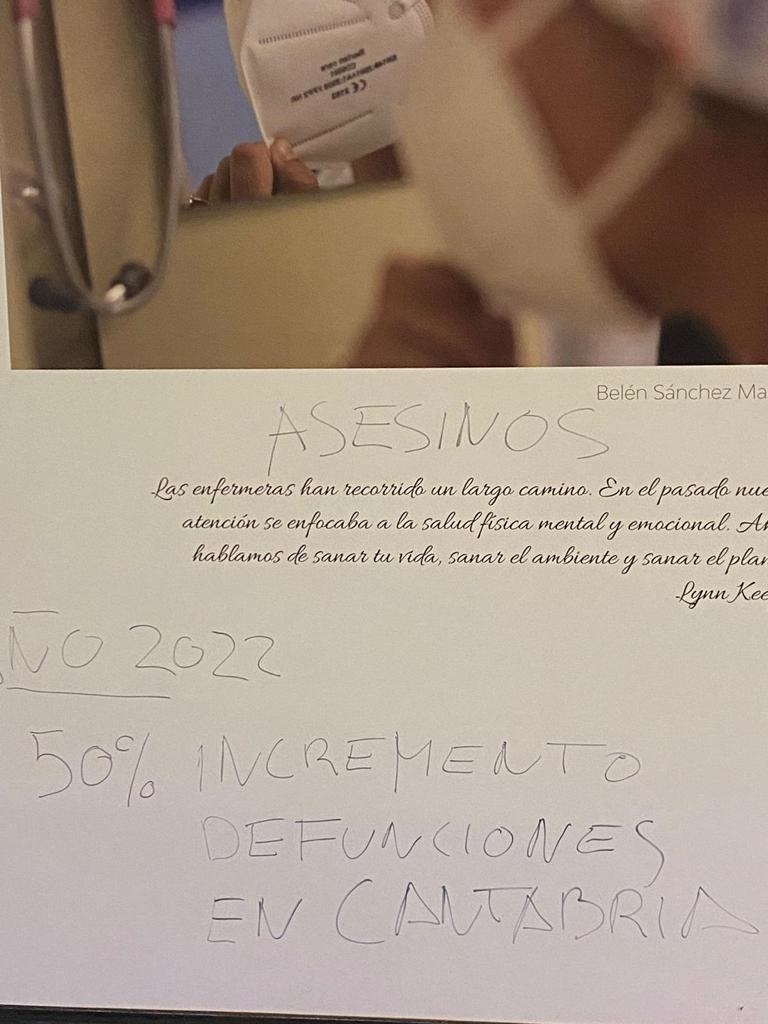 CE 2163
Belén Sánchez Ma
ASESINOS
Las enfermeras han recorrido un largo camino. En el pasado nue
atención se enfocaba a la salud física mental y emocional. Ah
hablamos de sanar tu vida, sanar el ambiente y sanar el plan
Lynn Kee
ÑO 2022
50% INCREMENTO
DEFUNCIONES
EN CANTABRIA